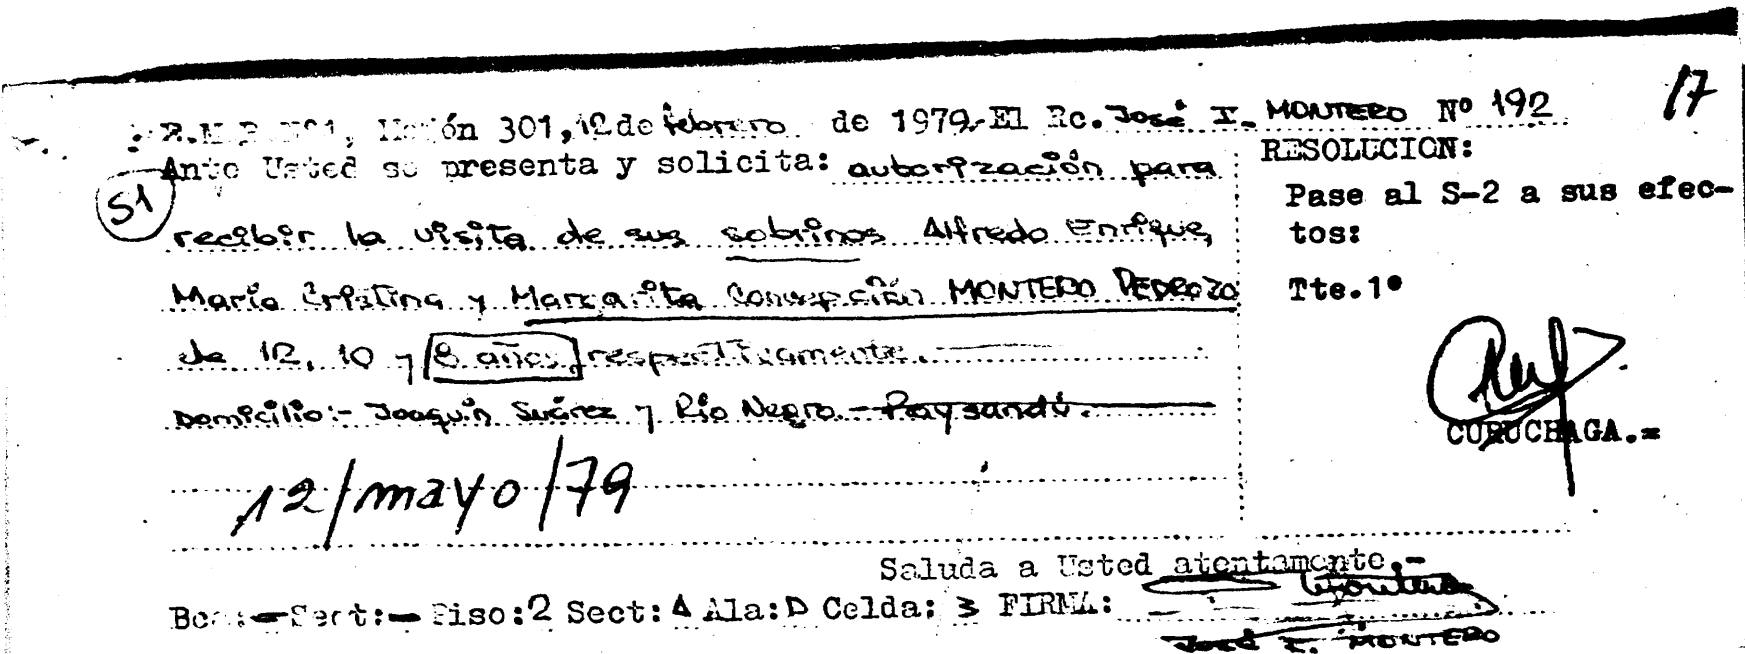 17
E.M.R. Nº1, Unión 301, 12 de febrero de 1979.-El Rc. José I. MONTERO Nº 192
Ante Usted se presenta y solicita: autorización para
S1
recibir la visita de sus sobrinos Alfredo Enrique,
María Cristina y Margarita Concepción MONTERO PEDROZO
de 12, 10 y 8 años, respectivamente.
Domicilio:- Joaquín Suárez y Río Negro.- Paysandú.
12/mayo/79
RESOLUCION:
Pase al S-2 a sus efec-
tos:
Tte.1º
CURUCHAGA.=
Saluda a Usted atentamente.-
Sect:- Piso:2 Sect: A Ala: D Celda: 3 FIRMA:
José I. MONTERO